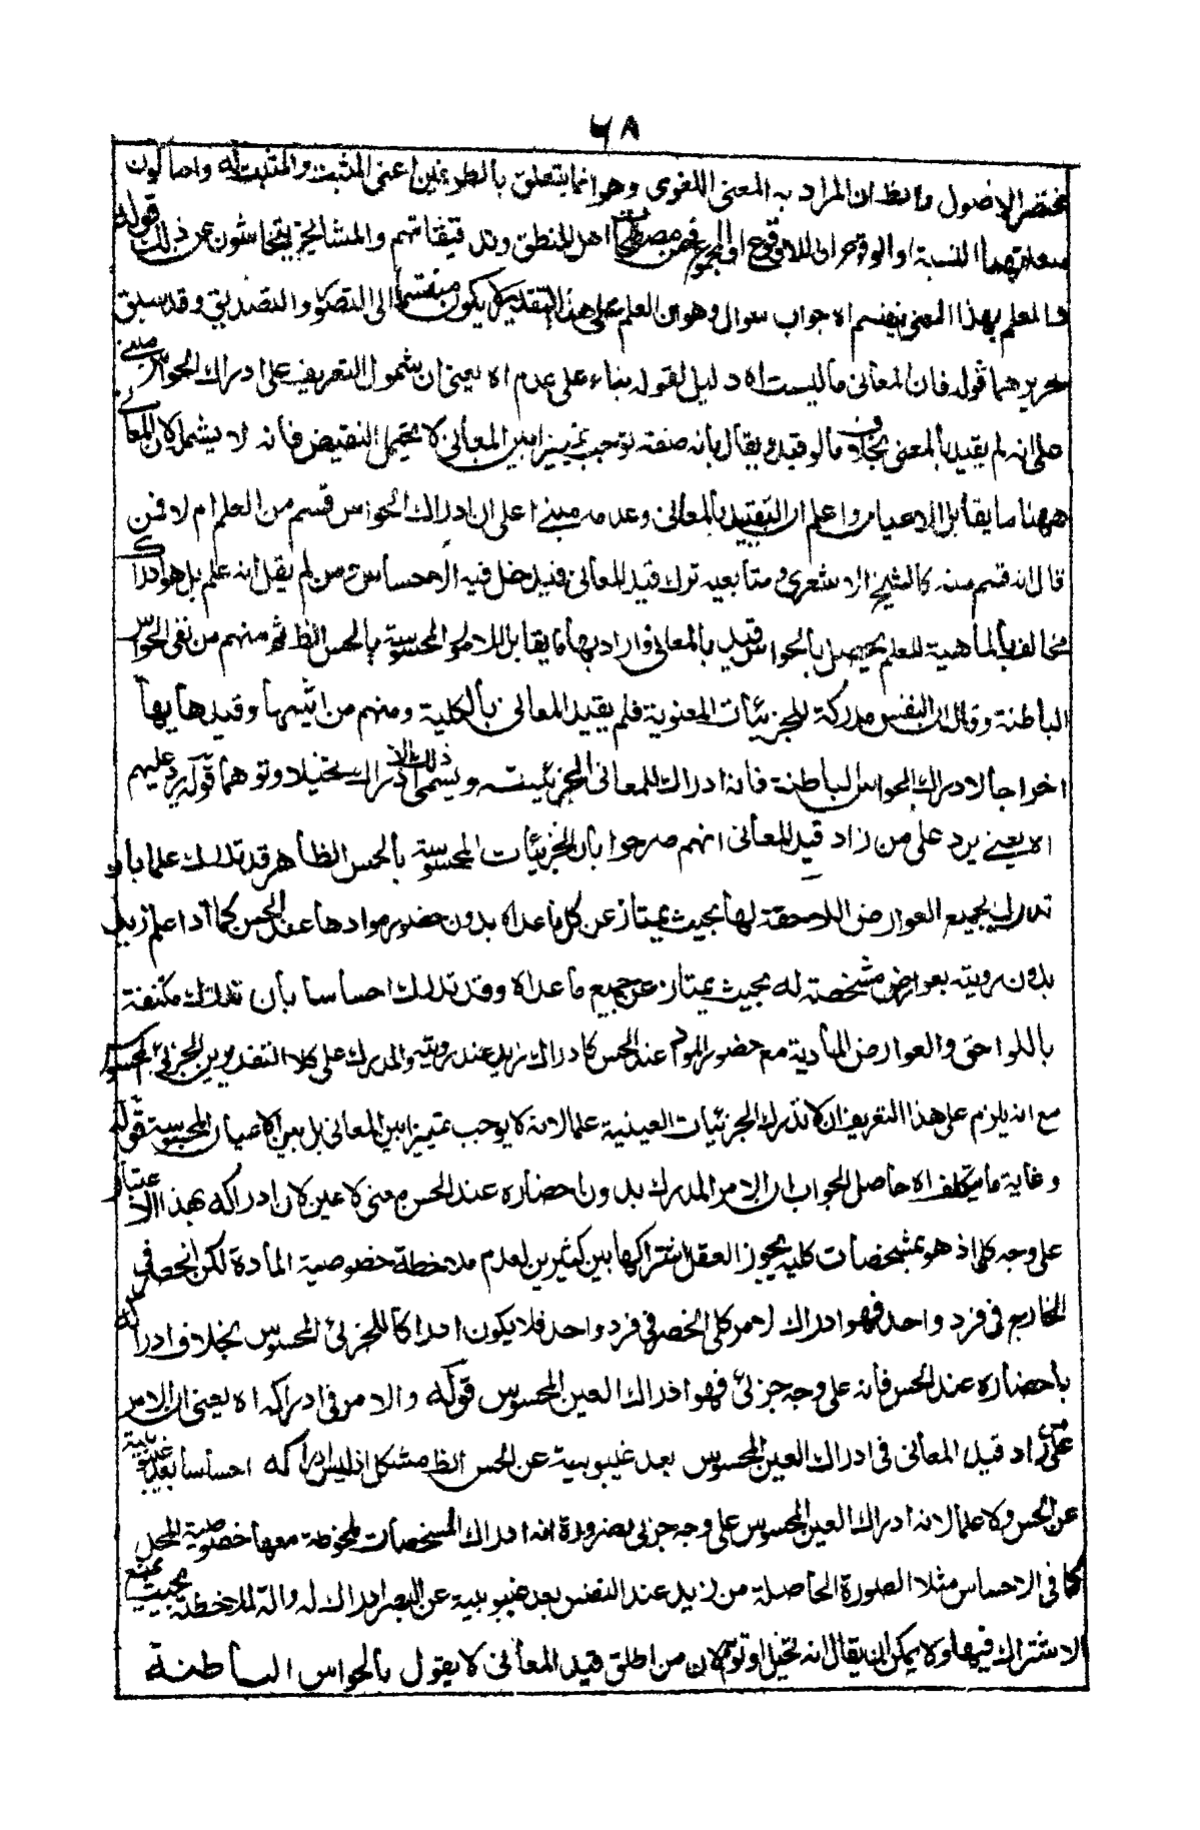 ٦٨
مختصر الاصول والظ ان المراد به المعنى اللغوى وهو انما يتعلق بالطرفين اعنى المثبت والمثبت له واما كون
متعلقهما النسبة او الوقوع او اللاوقوع او المجموع فمن مصطلحات اهل المنطق وتدقيقاتهم والمشايخ يتحاشون عن ذلك قوله
فالعلم بهذا المعنى ينقسم اه جواب سوال وهو ان العلم على هذا التقدير يكون منقسما الى التصور والتصديق وقد سبق
تحريرهما قوله فان المعانى ما ليست اه دليل لقوله بناء على عدم اه يعنى ان شمول التعريف على ادراك الحواس مبنى
على انه لم يقيد بالمعنى بخلاف ما لو قيد ويقال بانه صفة توجب تمييزا بين المعانى لا يحتمل النقيض فانه لا يشمل لان المعانى
ههنا ما يقابل الاعيان واعلم ان التقييد بالمعانى وعدمه مبنى على ان ادراك الحواس قسم من العلم ام لا فمن
قال انه قسم منه كالشيخ الاشعرى ومتابعيه ترك قيد المعانى فيدخل فيه الاحساس ومن لم يقل انه علم بل هو ادراك
مخالف بالماهية للعلم يحصل بالحواس قيد بالمعانى واراد بها ما يقابل الامور المحسوسة بالحس الظ ثم منهم من نفى الحواس
الباطنة وقال ان النفس مدركة للجزئيات المعنوية فلم يقيد المعانى بالكلية ومنهم من اثبتها وقيدها بها
اخراجا لادراك الحواس الباطنة فانه ادراك للمعانى الجزئية ويسمى ذلك الادراك تخيلا وتوهما قوله يرد عليهم
اه يعنى يرد على من زاد قيد المعانى انهم صرحوا بان الجزئيات المحسوسة بالحس الظاهر قد تدرك علما بان
تدرك بجميع العوارض اللاحقة لها بحيث يمتاز عن كل ما عداه بدون حضور موادها عند الحس كما اذا علم زيد
بدون رويته بعوارض مشخصة له بحيث يمتاز عن جميع ما عداه وقد تدرك احساسا بان تدرك مكتنفة
باللواحق والعوارض المادية مع حضور المواد عند الحس كادراك زيد عند رويته والمدرك على كلا التقديرين الجزئى المحسوس
مع انه يلزم على هذا التعريف ان لا تدرك الجزئيات العينية علما لانه لا يوجب تمييزا بين المعانى بل بين الاعيان المحسوسة قوله
وغاية ما يتكلف اه حاصل الجواب ان الامر المدرك بدون احضاره عند الحس معنى لا عين لان ادراكه بهذا الاعتبار
على وجه كلى اذ هو بمشخصات كلية يجوز العقل اشتراكها بين كثيرين لعدم ملاحظة خصوصية المادة لكن انحصر فى
الخارج فى فرد واحد فهو ادراك لامر كلى انحصر فى فرد واحد فلا يكون ادراكا للجزئى المحسوس بخلاف ادراكه
باحضاره عند الحس فانه على وجه جزئى فهو ادراك العين المحسوس قوله والامر فى ادراكه اه يعنى ان الامر
على من زاد قيد المعانى فى ادراك العين المحسوس بعد غيبوبية عن الحس الظ مشكل اذ ليس ادراكه احساسا بعد غيبوبية
عن الحس ولا علما لانه ادراك العين المحسوس على وجه جزئى بضرورة انه ادراك المشخصات ملحوظة معها خصوصية المحل
كما فى الاحساس مثلا الصورة الحاصلة من زيد عند النفس بعد غيبوبية عن البصر ادراك له والة لملاحظته بحيث يمتنع
الاشتراك فيها ولا يمكن ان يقال انه تخيل او توهم لان من اطلق قيد المعانى لا يقول بالحواس الباطنة